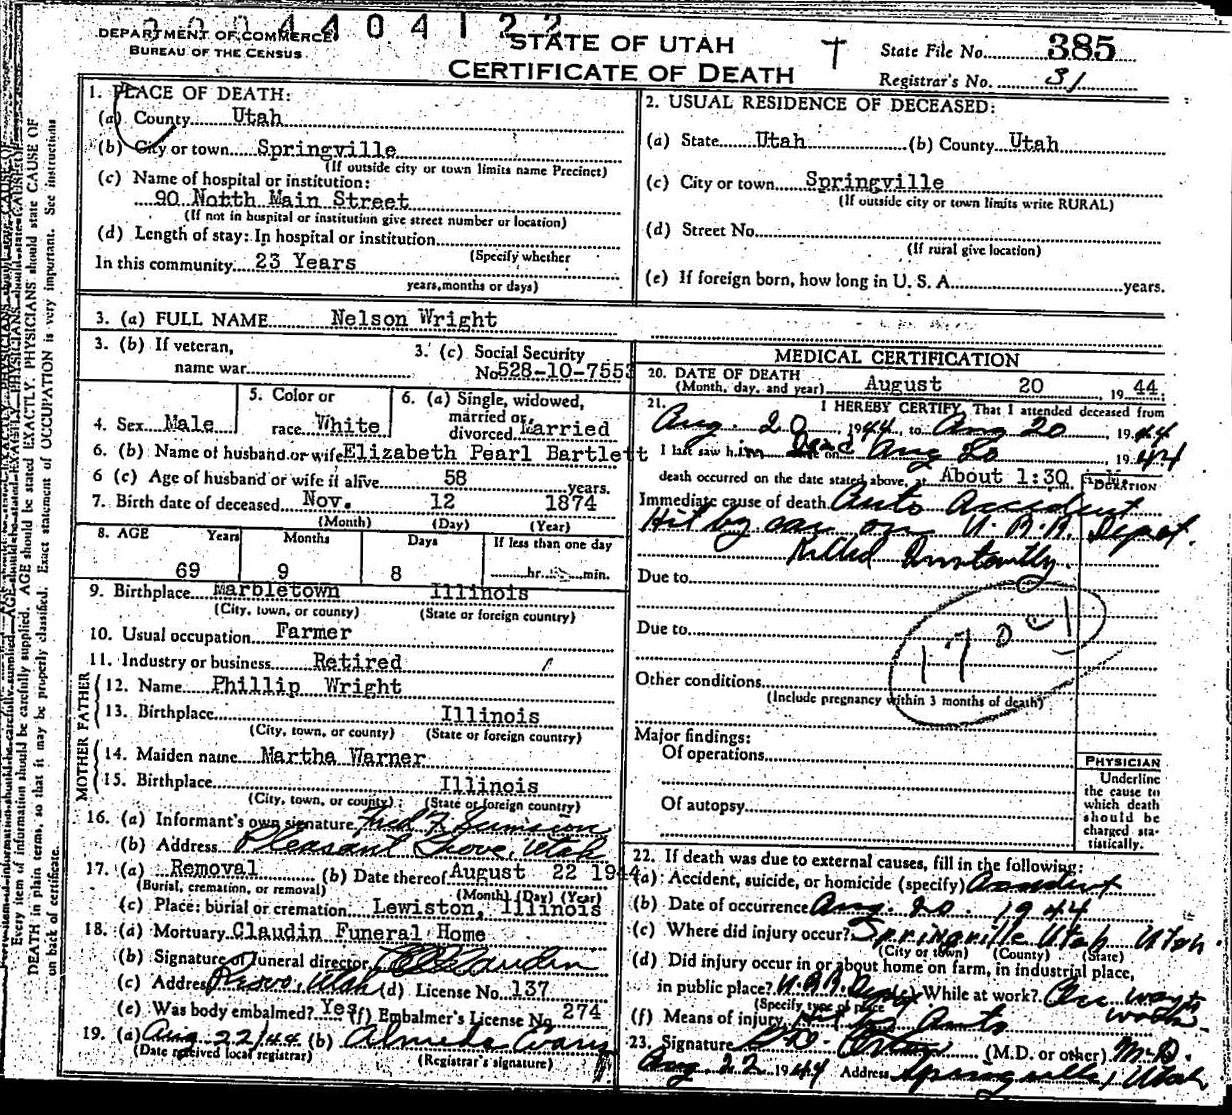 DEPARTMENT OF COMMERCE
BUREAU OF THE CENSUS
4 0 4 1 2 2
STATE OF UTAH
CERTIFICATE OF DEATH
State File No. 385
Registrar's No. 31
1. PLACE OF DEATH:
(a) County Utah
(b) City or town Springville
(If outside city or town limits name Precinct)
(c) Name of hospital or institution:
90 North Main Street
(If not in hospital or institution give street number or location)
(d) Length of stay: In hospital or institution
(Specify whether
In this community 23 Years
years, months or days)
2. USUAL RESIDENCE OF DECEASED:
(a) State Utah (b) County Utah
(c) City or town Springville
(If outside city or town limits write RURAL)
(d) Street No.
(If rural give location)
(e) If foreign born, how long in U. S. A. years.
3. (a) FULL NAME Nelson Wright
3. (b) If veteran,
name war
3. (c) Social Security
No. 528-10-7553
4. Sex Male
5. Color or
race White
6. (a) Single, widowed,
married or
divorced Married
6. (b) Name of husband or wife Elizabeth Pearl Bartlett
6 (c) Age of husband or wife if alive 58 years.
7. Birth date of deceased Nov. 12 1874
(Month) (Day) (Year)
8. AGE Years Months Days If less than one day
69 9 8 hr. min.
9. Birthplace Marbletown Illinois
(City, town, or county) (State or foreign country)
10. Usual occupation Farmer
11. Industry or business Retired
FATHER
12. Name Phillip Wright
13. Birthplace Illinois
(City, town, or county) (State or foreign country)
MOTHER
14. Maiden name Martha Warner
15. Birthplace Illinois
(City, town, or county) (State or foreign country)
16. (a) Informant's own signature Fred F.
(b) Address Pleasant Grove, Utah
17. (a) Removal (b) Date thereof August 22 1944
(Burial, cremation, or removal) (Month) (Day) (Year)
(c) Place: burial or cremation Lewiston, Illinois
18. (a) Mortuary Claudin Funeral Home
(b) Signature of funeral director Claudin
(c) Address Provo, Utah (d) License No. 137
(e) Was body embalmed? Yes (f) Embalmer's License No. 274
19. (a) Aug 22/44 (b) Almeda
(Date received local registrar) (Registrar's signature)
MEDICAL CERTIFICATION
20. DATE OF DEATH
(Month, day, and year) August 20, 1944
21. I HEREBY CERTIFY, That I attended deceased from
Aug. 20, 1944, to Aug 20, 1944
I last saw him Dead on Aug 20 1944
death occurred on the date stated above, at About 1:30 M.
DURATION
Immediate cause of death Auto Accident
Hit by car on U.R.R. Depot.
Killed Instantly.
Due to
Due to
170
Other conditions
(Include pregnancy within 3 months of death)
Major findings:
Of operations
Of autopsy
PHYSICIAN
Underline
the cause to
which death
should be
charged sta-
tistically.
22. If death was due to external causes, fill in the following:
(a) Accident, suicide, or homicide (specify) Accident
(b) Date of occurrence Aug. 20. 1944
(c) Where did injury occur? Springville Utah Utah
(City or town) (County) (State)
(d) Did injury occur in or about home on farm, in industrial place,
in public place? U.R.R. Depot (e) While at work? On way to
(Specify type of place) work
(f) Means of injury Hit by Auto
23. Signature (M.D. or other) M.D.
Aug. 22 1944 Address Springville, Utah
Every item of information should be carefully supplied. AGE should be stated EXACTLY. PHYSICIANS should state CAUSE OF
DEATH in plain terms, so that it may be properly classified. Exact statement of OCCUPATION is very important. See instructions
on back of certificate.